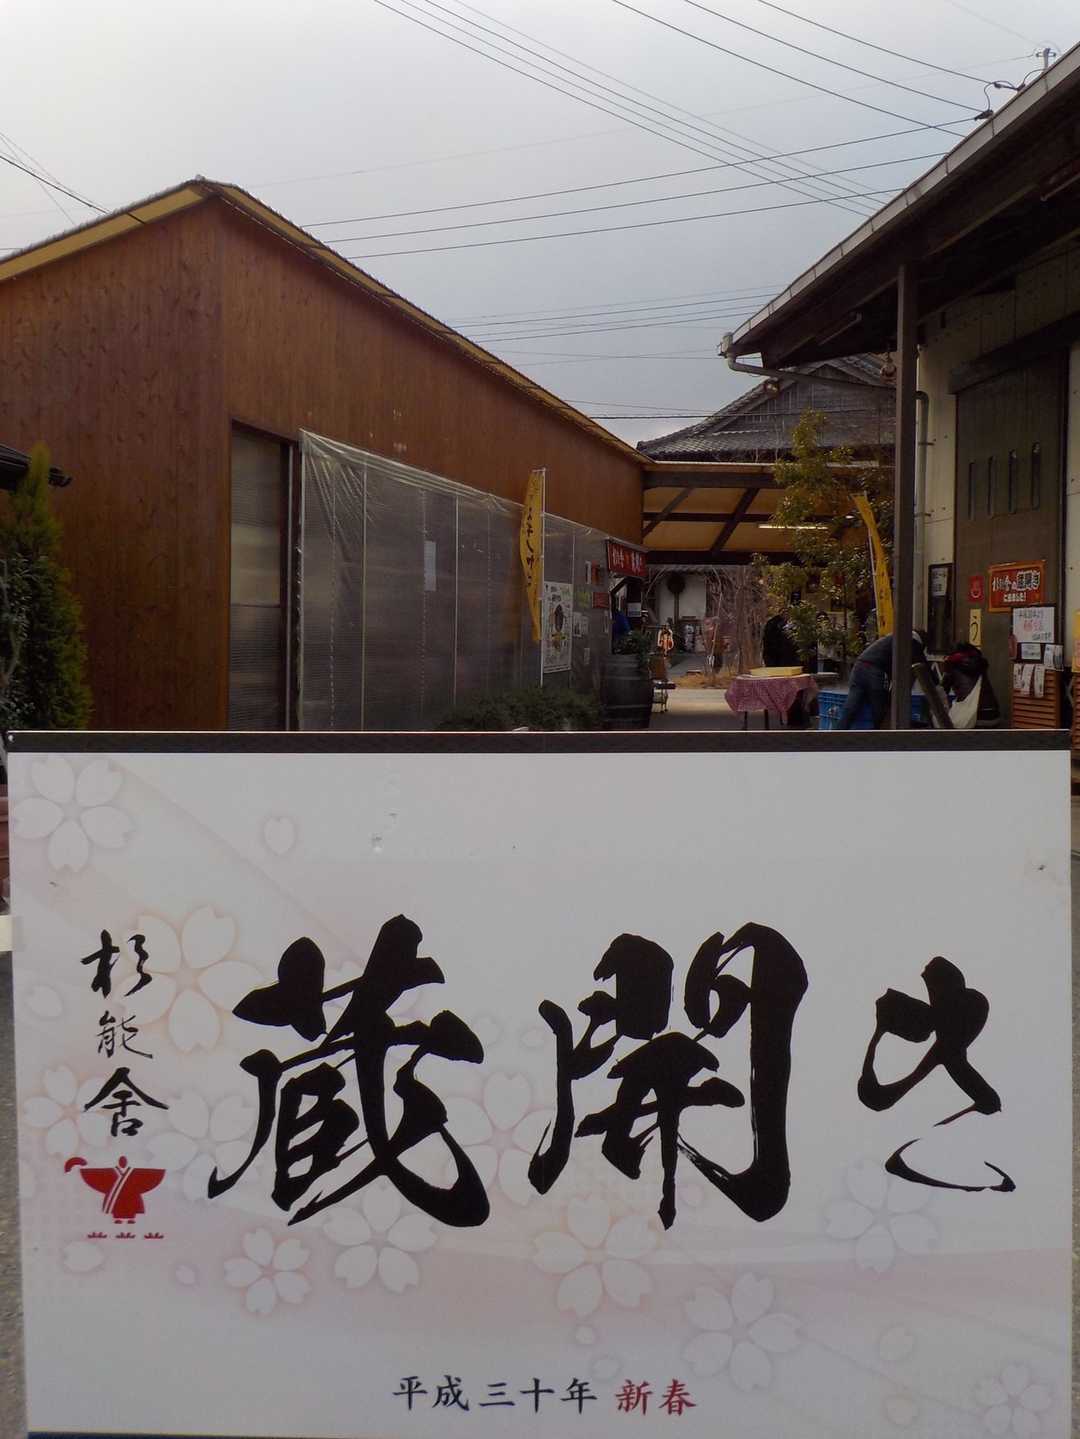 杉能舎
蔵開き
平成三十年 新春